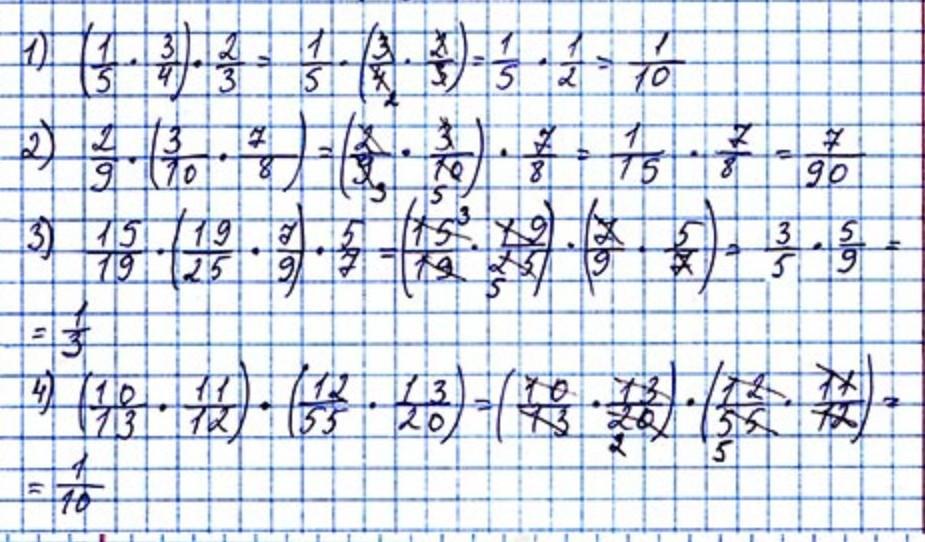 1) (1/5 · 3/4) · 2/3 = 1/5 · (3/4 2 · 2/3) = 1/5 · 1/2 = 1/10
2) 2/9 · (3/10 · 7/8) = (2/9 3 · 3/10 5) · 7/8 = 1/15 · 7/8 = 7/90
3) 15/19 · (19/25 · 7/9) · 5/7 = (15 3/19 · 19/25 5) · (7/9 · 5/7) = 3/5 · 5/9 =
= 1/3
4) (10/13 · 11/12) · (12/55 · 13/20) = (10/13 · 13/20 2) · (12/55 5 · 11/12) =
= 1/10